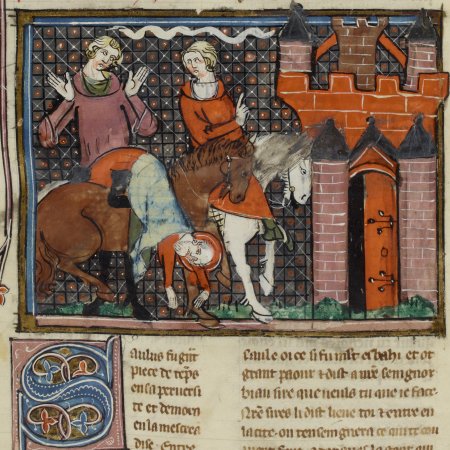 Saulus fu grāt
piece de tēps
en sa perversi
te et demora
en la mescrea
dise. Entre
saule oi ce si fu mlt esbahi et ot
grant paour et dist a nr̄e seingnor
biau sire que veuls tu que ie face.
Nr̄e sires li dist lieue toi et entre en
la cite. on tenseignera ce q̄ te con